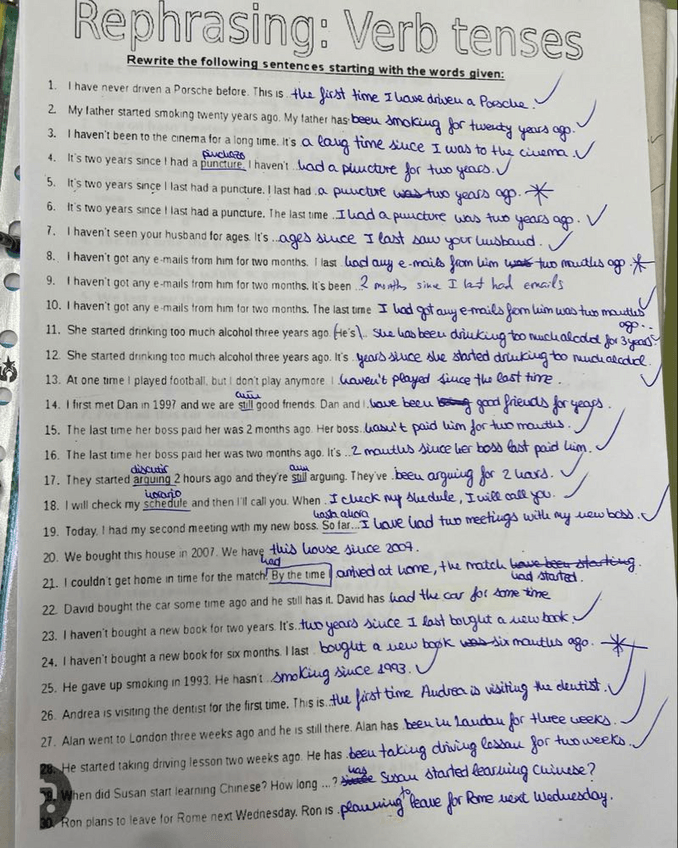 Rephrasing: Verb tenses
Rewrite the following sentences starting with the words given:
1. I have never driven a Porsche before. This is the first time I have driven a Porsche.
2. My father started smoking twenty years ago. My father has been smoking for twenty years ago.
3. I haven't been to the cinema for a long time. It's a long time since I was to the cinema.
pinchazo
4. It's two years since I had a puncture. I haven't had a puncture for two years.
5. It's two years since I last had a puncture. I last had a puncture was two years ago.
6. It's two years since I last had a puncture. The last time I had a puncture was two years ago.
7. I haven't seen your husband for ages. It's ages since I last saw your husband.
8. I haven't got any e-mails from him for two months. I last had any e-mails from him was two months ago
9. I haven't got any e-mails from him for two months. It's been 2 months sine I last had emails
10. I haven't got any e-mails from him for two months. The last time I had got any e-mails from him was two months
ago..
11. She started drinking too much alcohol three years ago (He's). She has been drinking too much alcohol for 3 years
12. She started drinking too much alcohol three years ago. It's years since she started drinking too much alcohol.
13. At one time I played football, but I don't play anymore. I haven't played since the last time.
aun
14. I first met Dan in 1997 and we are still good friends. Dan and I have been being good friends for years.
15. The last time her boss paid her was 2 months ago. Her boss hasn't paid him for two months.
16. The last time her boss paid her was two months ago. It's 2 months since her boss last paid him.
discutir aun
17. They started arguing 2 hours ago and they're still arguing. They've been arguing for 2 hours.
horario
18. I will check my schedule and then I'll call you. When I check my shedule, I will call you.
hasta ahora
19. Today, I had my second meeting with my new boss. So far... I have had two meetings with my new boss.
20. We bought this house in 2007. We have this house since 2007.
had
21. I couldn't get home in time for the match! By the time I arrived at home, the match have been starting.
had started.
22. David bought the car some time ago and he still has it. David has had the car for some time
23. I haven't bought a new book for two years. It's two years since I last bought a new book.
24. I haven't bought a new book for six months. I last bought a new book was six months ago.
25. He gave up smoking in 1993. He hasn't smoking since 1993.
26. Andrea is visiting the dentist for the first time. This is the first time Andrea is visiting the dentist.
27. Alan went to London three weeks ago and he is still there. Alan has been in London for three weeks.
28. He started taking driving lesson two weeks ago. He has been taking driving lesson for two weeks.
has
When did Susan start learning Chinese? How long ...? Susan started learning Chinese?
to
30. Ron plans to leave for Rome next Wednesday. Ron is planning leave for Rome next Wednesday.